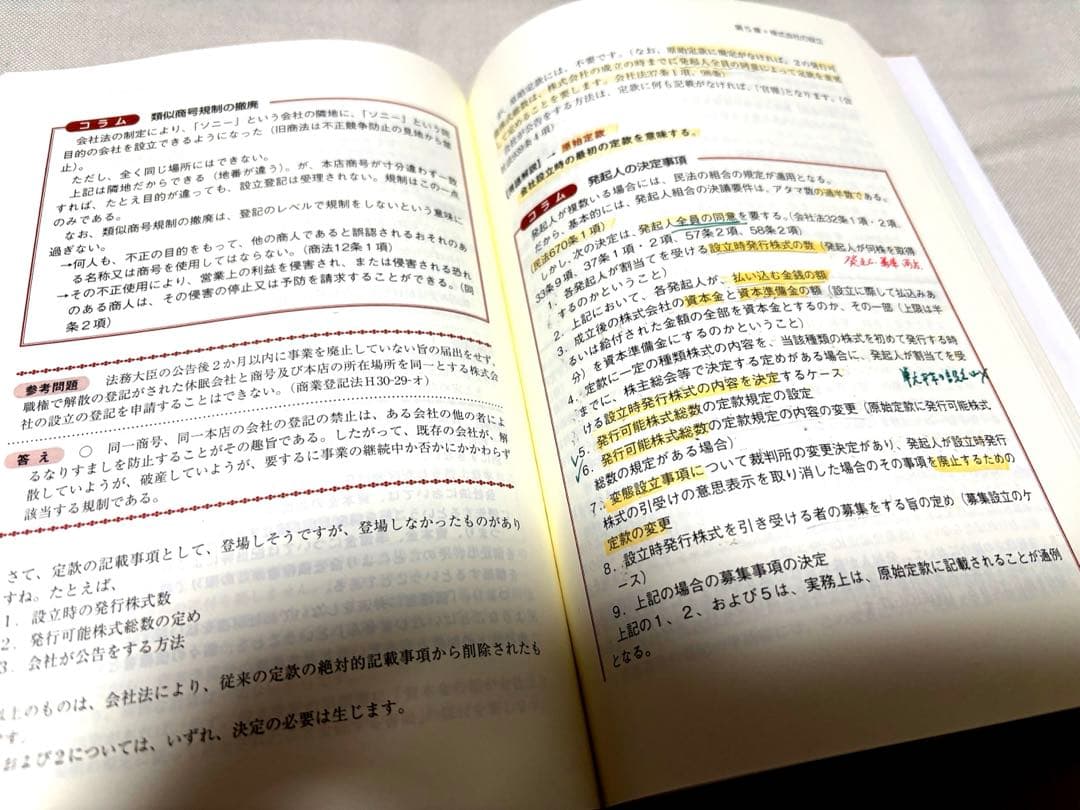 コラム 類似商号規制の撤廃
会社法の制定により、「ソニー」という会社の隣地に、「ソニー」という同
目的の会社を設立できるようになった（旧商法は不正競争防止の見地から禁
止）。
ただし、全く同じ場所にはできない。
上記は隣地だからできる（地番が違う）。が、本店商号が寸分違わず一致
すれば、たとえ目的が違っても、設立登記は受理されない。規制はこの一点
のみである。
なお、類似商号規制の撤廃は、登記のレベルで規制をしないという意味に
過ぎない。
→何人も、不正の目的をもって、他の商人であると誤認されるおそれのあ
る名称又は商号を使用してはならない。（商法12条1項）
→その不正使用により、営業上の利益を侵害され、または侵害される恐れ
のある商人は、その侵害の停止又は予防を請求することができる。（同
条2項）
参考問題 法務大臣の公告後2か月以内に事業を廃止していない旨の届出をせず、
職権で解散の登記がされた休眠会社と商号及び本店の所在場所を同一とする株式会
社の設立の登記を申請することはできない。（商業登記法H30-29-オ）
答え ○ 同一商号、同一本店の会社の登記の禁止は、ある会社の他の者によ
るなりすましを防止することがその趣旨である。したがって、既存の会社が、解
散していようが、破産していようが、要するに事業の継続中か否かにかかわらず
該当する規制である。
さて、定款の記載事項として、登場しそうですが、登場しなかったものがあり
すね。たとえば、
1．設立時の発行株式数
2．発行可能株式総数の定め
3．会社が公告をする方法
以上のものは、会社法により、従来の定款の絶対的記載事項から削除されたも
です。
および2については、いずれ、決定の必要は生じます。
第5章 株式会社の設立
が、原始定款には、不要です。（なお、原始定款に規定がなければ、2の発行可
能株式総数は、株式会社の成立の時までに発起人全員の同意によって定款を変更
して定めることを要します。会社法37条1項、98条）
会社が公告をする方法は、定款に何も記載がなければ、「官報」となります。（会
社法939条4項）
【用語解説】→ 原始定款
会社設立時の最初の定款を意味する。
コラム 発起人の決定事項
発起人が複数いる場合には、民法の組合の規定が適用となる。
だから、基本的には、発起人組合の決議要件は、アタマ数の過半数である。
（民法670条1項）
しかし、次の決定は、発起人全員の同意を要する。（会社法32条1項・2項、
33条9項、37条1項・2項、57条2項、58条2項）
1．各発起人が割当てを受ける設立時発行株式の数（発起人が何株を取得
するのかということ）
2．上記において、各発起人が、払い込む金銭の額
3．成立後の株式会社の資本金と資本準備金の額（設立に際して払込みあ
るいは給付された金額の全部を資本金とするのか、その一部（上限は半
分）を資本準備金にするのかということ）
4．定款に一定の種類株式の内容を、当該種類の株式を初めて発行する時
までに、株主総会等で決定する定めがある場合に、発起人が割当てを受
ける設立時発行株式の内容を決定するケース
5．発行可能株式総数の定款規定の設定
6．発行可能株式総数の定款規定の内容の変更（原始定款に発行可能株式
総数の規定がある場合）
7．変態設立事項について裁判所の変更決定があり、発起人が設立時発行
株式の引受けの意思表示を取り消した場合のその事項を廃止するための
定款の変更
8．設立時発行株式を引き受ける者の募集をする旨の定め（募集設立のケ
ース）
9．上記の場合の募集事項の決定
上記の1、2、および5は、実務上は、原始定款に記載されることが通例
となる。